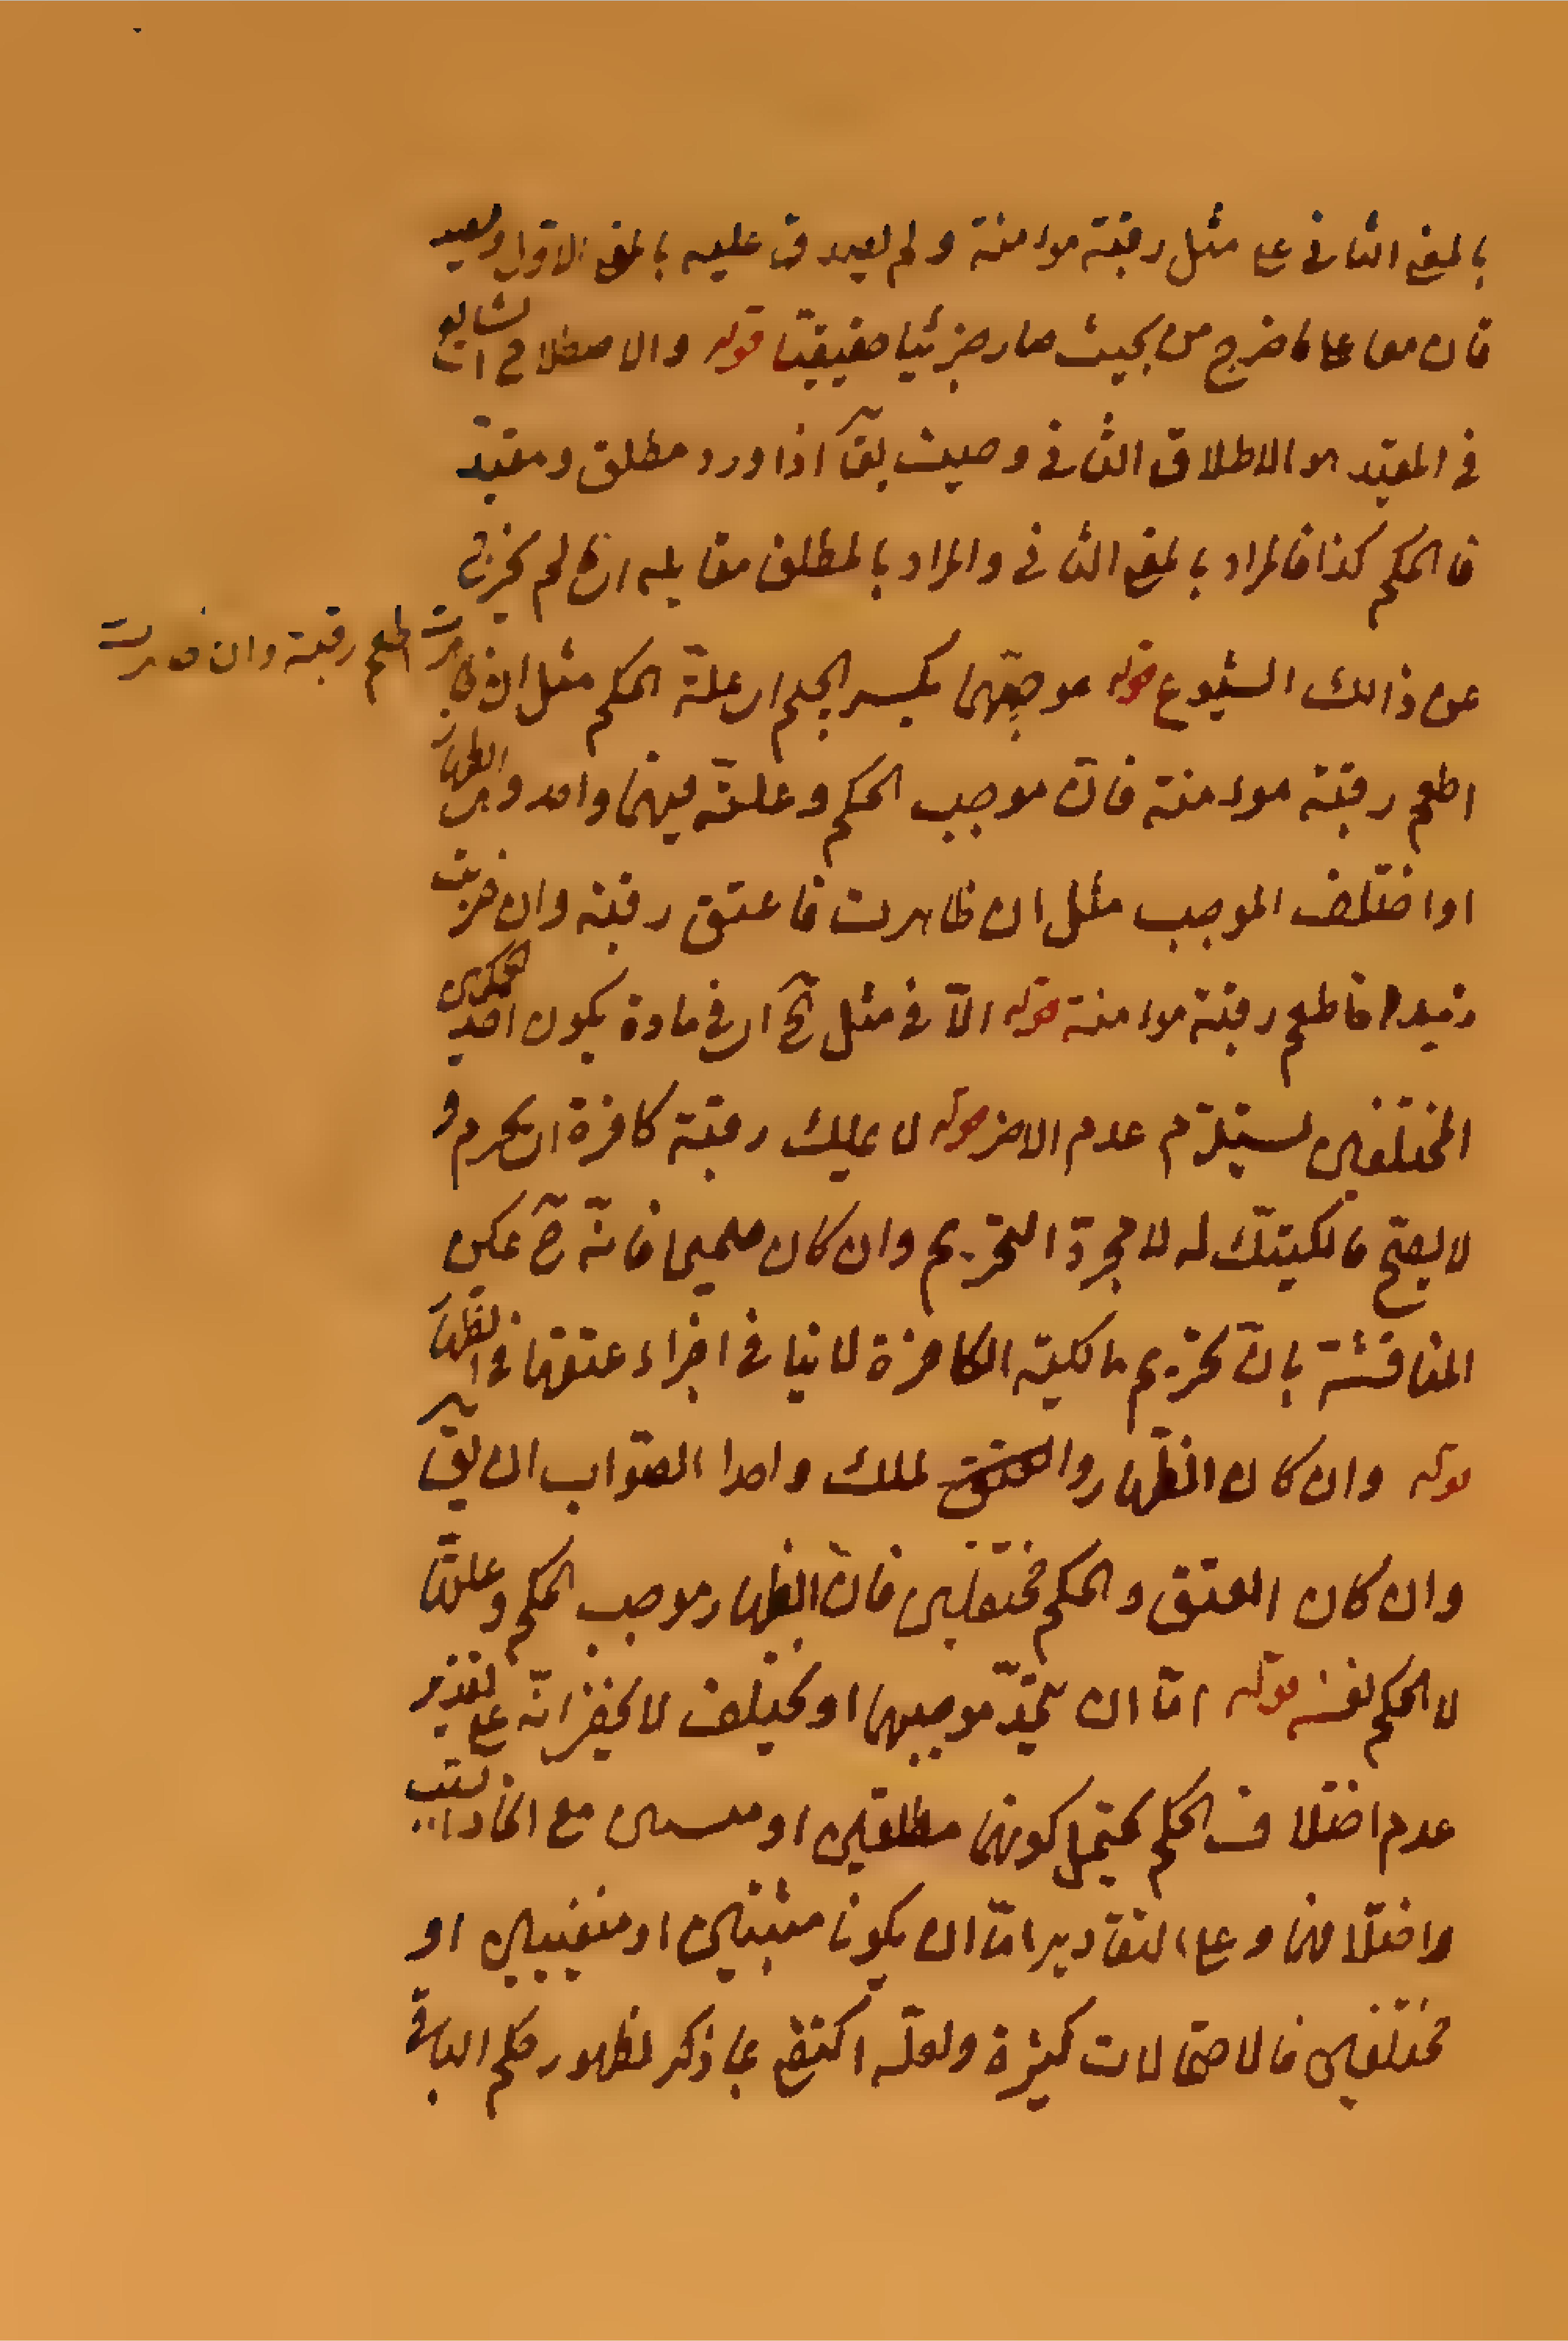 بالمعنى الثانى على مثل رقبة مؤمنة ولم يصدق عليه بالمعنى الاول ويصد
فان معا على ما خرج من بحيث صار جزئيا حقيقيا قوله والاصطلاح الشايع
فى المقيد هو الاطلاق الثانى وحيث يقٓ اذا ورد مطلق ومقيد
فالحكم كذا فالمراد بالمعنى الثانى والمراد بالمطلق مقابله اى ما لم يخرج
عن ذالك الشيوع قوله موجبهما بكسر الجيم اى علة الحكم مثل ان ظاهرت اطعم رقبة وان ظاهرت
اطعم رقبة مؤمنة فان موجب الحكم وعلته فيهما واحد وهى الظهار
او اختلف الموجب مثل ان ظاهرت فاعتق رقبة وان ضربت
زيدا فاطعم رقبة مؤمنة قوله الّا فى مثل الخ اى فى مادة يكون احد الحكمين
المختلفين يستلزم عدم الاخر قوله لا تملك رقبة كافرة اى يحرم و
لا يصح مالكيتك له لا مجرد التحريم وان كان صحيحا فانّه حٓ يمكن
المناقشة بان تحريم مالكية الكافرة لا ينافى اجزاء عتقها فى الظهار
قوله وان كان الظهار والعتق لملك واحدا الصواب ان يقٓ
وان كان العتق والحكم مختلفين فان الظهار موجب الحكم وعلته
لا الحكم نفسه قوله امّا ان يتّحد موجبهما او يختلف لا يخفى انّه على تقدير
عدم اختلاف الحكم يحتمل كونهما مطلقين او مع اتحاد السبب
واختلافهما وعلى التقادير امّا ان يكونا مثبتين او منفيين او
مختلفين فالاحتمالات كثيرة ولعلّه اكتفى بما ذكر لظهور حكم الباقى